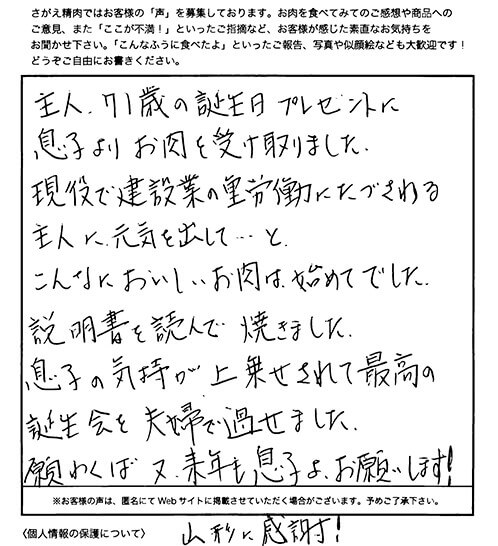 さがえ精肉ではお客様の「声」を募集しております。お肉を食べてみてのご感想や商品への
ご意見、また「ここが不満！」といったご指摘など、お客様が感じた素直なお気持ちを
お聞かせ下さい。「こんなふうに食べたよ」といったご報告、写真や似顔絵なども大歓迎です！
どうぞご自由にお書きください。
主人、71歳の誕生日プレゼントに
息子よりお肉を受け取りました。
現役で建設業の重労働にたづされる
主人に、元気を出して…と、
こんなにおいしいお肉は、始めてでした。
説明書を読んで焼きました。
息子の気持が上乗せされて最高の
誕生会を夫婦で過せました。
願わくば又、来年も息子よ、お願いします!
※お客様の声は、匿名にてWebサイトに掲載させていただく場合がございます。予めご了承下さい。
〈個人情報の保護について〉
山形に感謝す!